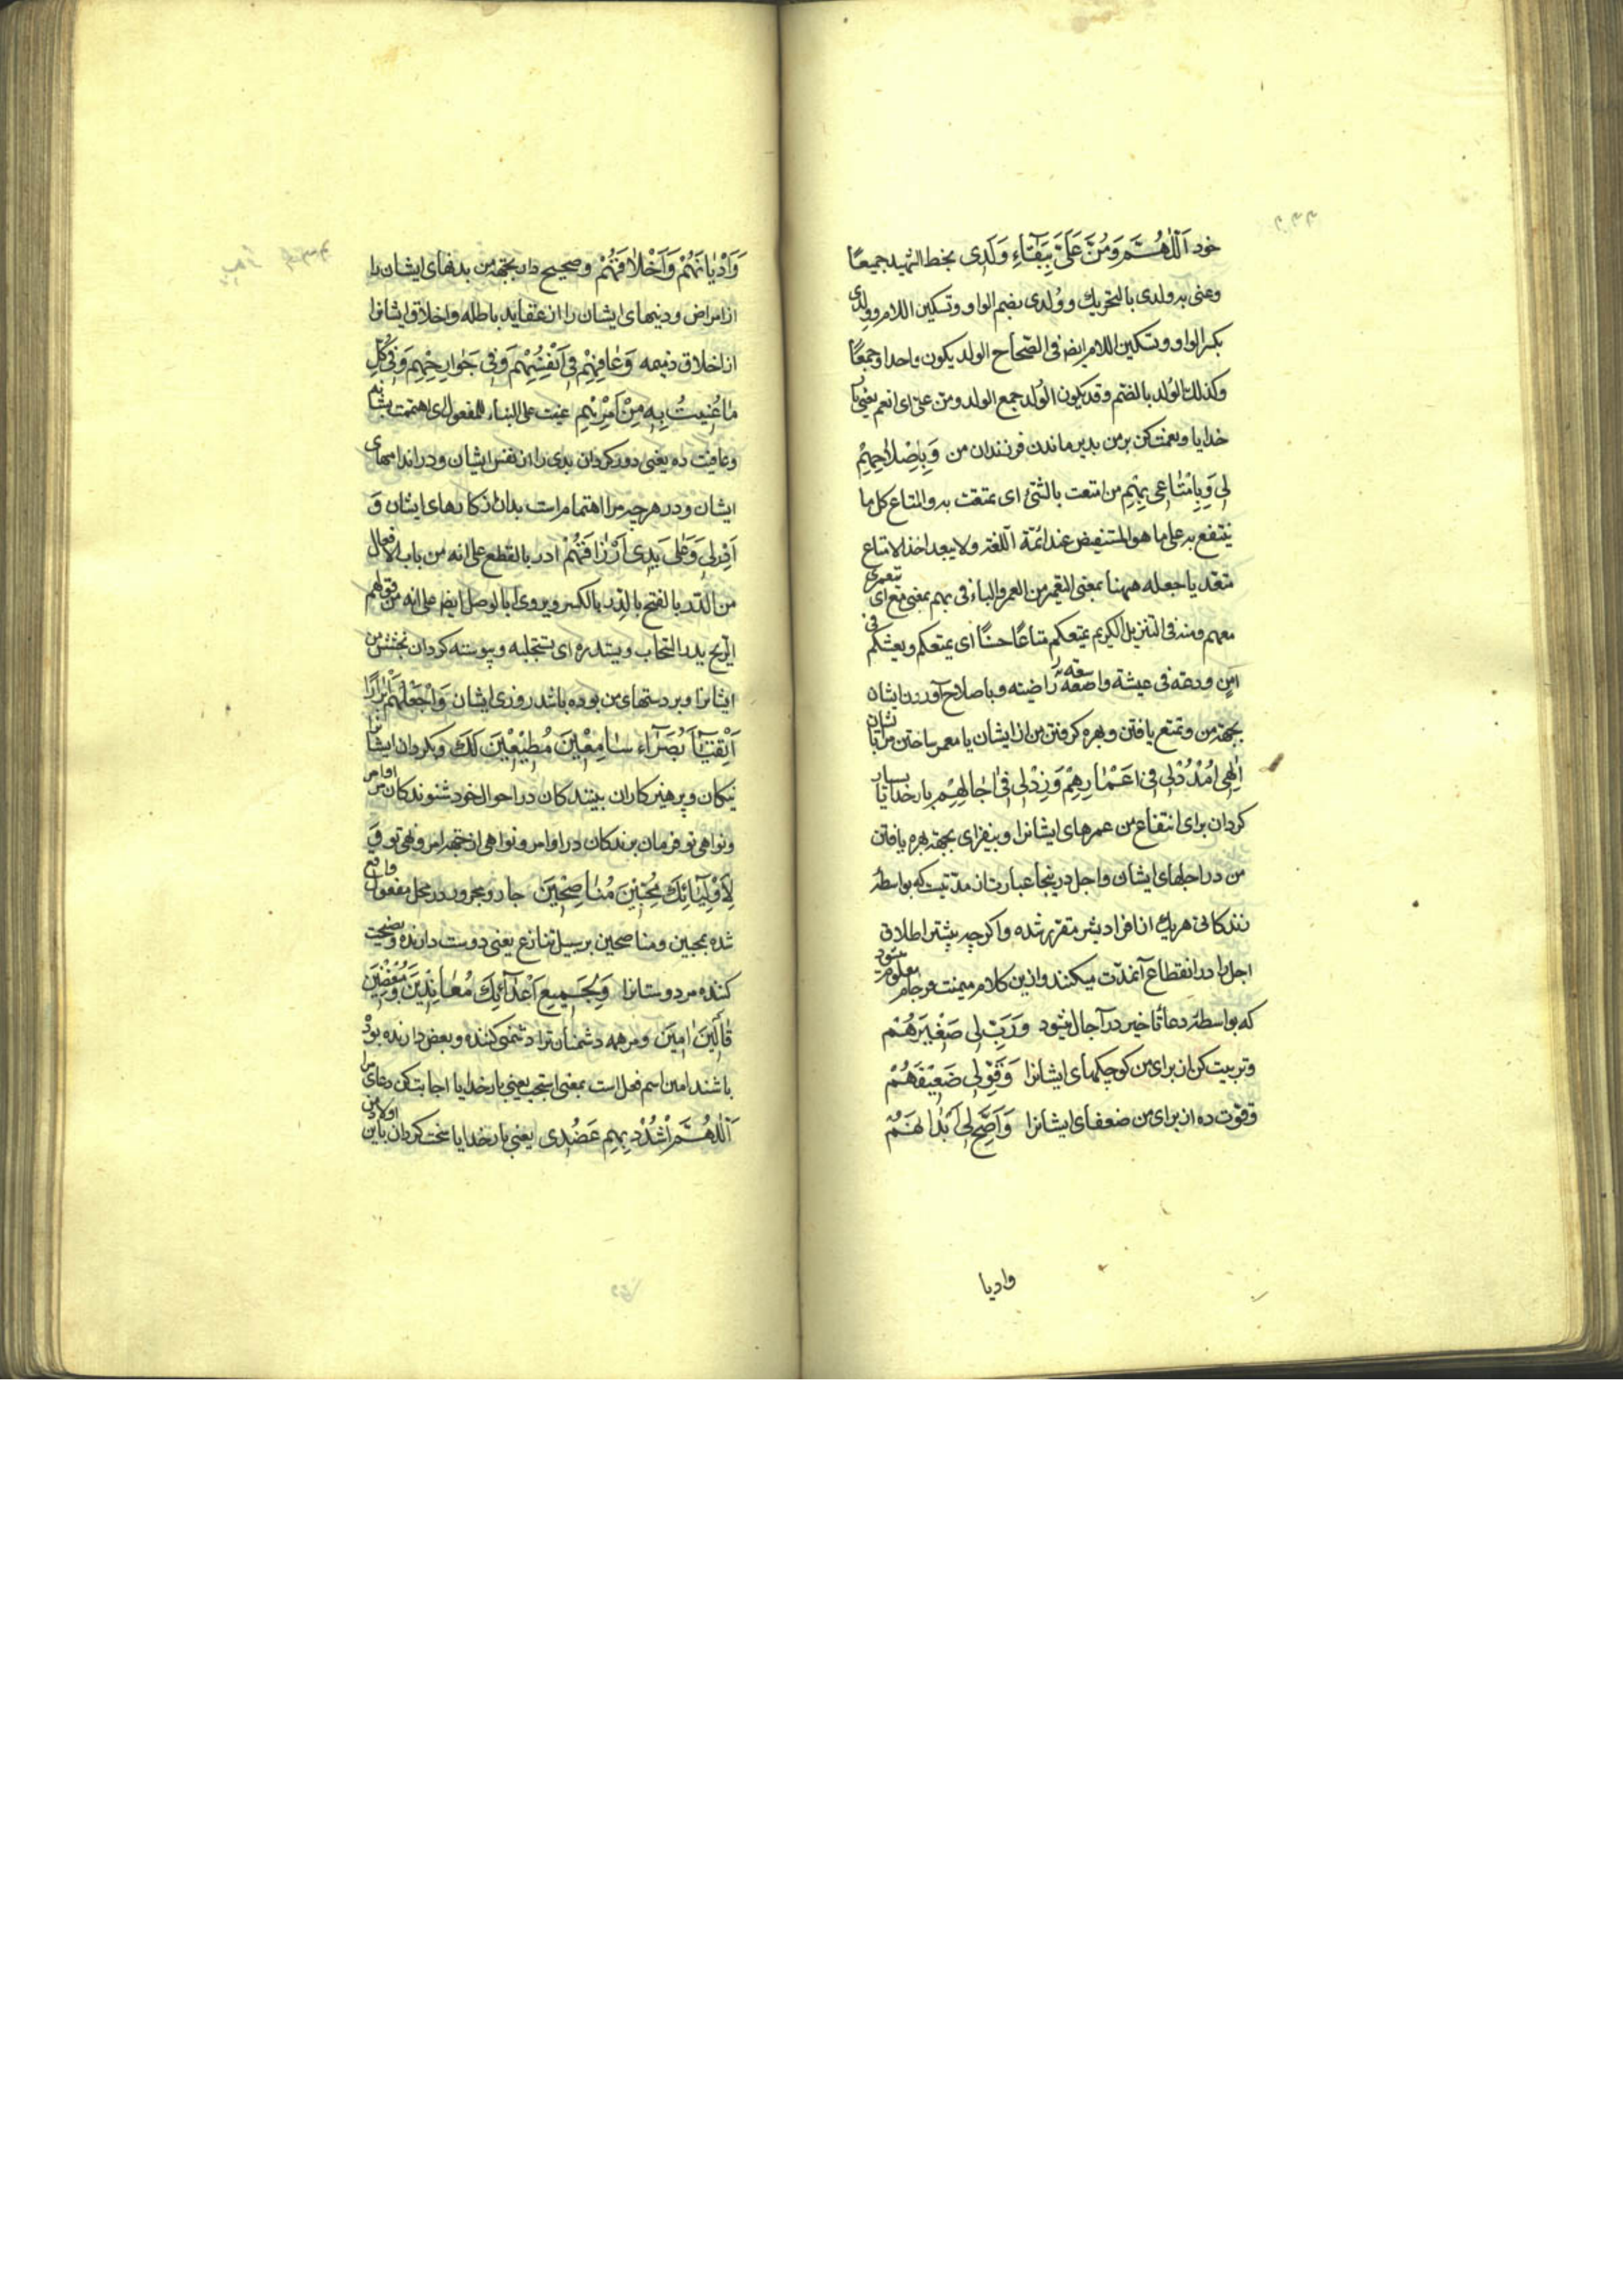 خود اَللّٰهُمَّ وَمُنَّ عَلَیَّ بِبَقَاءِ وَلَدِی بخط الشهید جمیعًا
وعنی به ولدی بالتحریك و وُلدی بضم الواو و تسکین اللام و وِلدی
بکسر الواو و تسکین اللام ایضا فی الصحاح الولد یکون واحدا وجمعًا
وکذلك الوُلد بالضم وقد یکون الوُلد جمع الولد ومن علیّ ای انعم یعنی بار
خدایا و نعمت کن بر من بدیر ماندن فرزندان من وَبِاِصْلَاحِهِمْ
لِی وَبِاِمْتَاعِی بِهِمْ من امتعت بالشئ ای تمتعت به والمتاع کل ما
ینتفع به علی ما هو المستفیض عند ائمّة اللغة ولا یبعد اخذ الامتاع
متعدیا جعله ههنا بمعنی التعمیر من العمر والباء فی بهم بمعنی مع ای تعمیری
معهم ومنه فی التنزیل الکریم یمتعکم متاعًا حسنًا ای یمتعکم ویعیشکم فی
امن ودعة فی عیشة واسعة راضیة و باصلاح آوردن ایشان
بجهة من و تمتع یافتن و بهره کرفتن من از ایشان یا معمر ساختن مرا با ایشان
اِلٰهِی امْدُدْ لِی فِی اَعْمَارِهِمْ وَزِدْ لِی فِی اٰجَالِهِمْ بار خدایا بسیار
کردان برای انتفاع من عمرهای ایشانرا و بیفزای بجهة بهره یافتن
من در اجلهای ایشان و اجل درینجا عبارت از مدتیست که بواسطه
زندکانی هریك از افراد بشر مقرر شده و اکرچه بیشتر اطلاق
اجل را در انقطاع آنمدّت میکنند و ازین کلام میمنت فرجام معلوم میشود
که بواسطهٔ دعا تاخیر در آجال میشود وَرَبِّ لِی صَغِیرَهُمْ
و تربیت کن از برای من کوچکهای ایشانرا وَقَوِّ لِی ضَعِیفَهُمْ
وقوت ده از برای من ضعفای ایشانرا وَاَصِحَّ لِی اَبْدَانَهُمْ
وادیا
وَاَدْیَانَهُمْ وَاَخْلَاقَهُمْ وصحیح دار بجهة من بدنهای ایشان را
از امراض و دینهای ایشان را از عقاید باطله و اخلاق ایشانرا
از اخلاق ذمیمه وَعَافِهِمْ فِی اَنْفُسِهِمْ وَفِی جَوَارِحِهِمْ وَفِی کُلِّ
مَا عُنِیتُ بِهِ مِنْ اَمْرِهِمْ عنیت علی البناء للمفعول ای اهتممت بشانه
وعافیت ده یعنی دور کردان بدی را از نفس ایشان و در اندامهای
ایشان و در هرچه مرا اهتمام است بدان از کارهای ایشان وَ
اَدْرِلِی وَعَلَی یَدِی اَرْزَاقَهُمْ ادر بالقطع علی انه من باب الافعال
من الدّر بالفتح بالدِّر بالکسر ویروی بالوصل ایضا علی انه من قولهم
الریح یدر السحاب ویستدره ای تستجلبه و پیوسته کردان بخشش من
ایشانرا و بر دستهای من بوده باشد روزی ایشان وَاجْعَلْهُمْ اَبْرَارًا
اَتْقِیَاءَ بُصَرَاءَ سَامِعِینَ مُطِیعِینَ لَكَ و بکردان ایشانرا
نیکان و پرهیزکاران بینندکان در احوال خود شنوندکان مر اوامر
ونواهی تو فرمان برندکان در اوامر و نواهی از جهة امر و نهی تو وَ
لِاَوْلِیَائِكَ مُحِبِّینَ مُنَاصِحِینَ جار و مجرور در محل مفعول واقع
شده بمحبین و مناصحین بر سبیل تنازع یعنی دوست دارنده و نصیحت
کننده مر دوستانرا وَبِجَمِیعِ اَعْدَائِكَ مُعَانِدِینَ وَمُبْغِضِینَ
قَالِینَ اٰمِینَ و مر همه دشمنان ترا دشمنی کننده و بغض دارنده بوده
باشند امین اسم فعل است بمعنی استجب یعنی بار خدایا اجابت کن دعای مرا
اَللّٰهُمَّ اشْدُدْ بِهِمْ عَضُدِی یعنی بار خدایا سخت کردان باین اولاد من